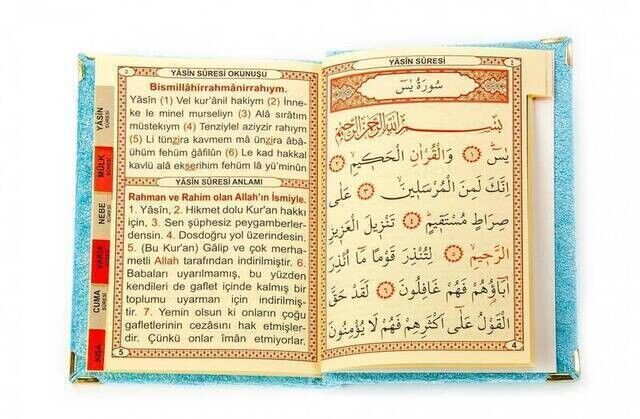 ٥
YÂSÎN SÛRESİ OKUNUŞU
Bismillâhirrahmânirrahıym.
Yâsîn (1) Vel kur'ânil hakiym (2) İnne-
ke le minel murseliyn (3) Alâ sırâtım
müstekıym (4) Tenziylel aziyzir rahıym
(5) Li tünzira kavmem mâ ünzira âbâ-
ühüm fehüm ğâfilûn (6) Le kad hakkal
kavlü alâ ekserihim fehüm lâ yü'minûn
YÂSİN SÛRESİ ANLAMI
Rahman ve Rahim olan Allah'ın İsmiyle.
1. Yâsîn, 2. Hikmet dolu Kur'an hakkı
için, 3. Sen şüphesiz peygamberler-
densin. 4. Dosdoğru yol üzerindesin.
5. (Bu Kur'an) Gâlip ve çok merha-
metli Allah tarafından indirilmiştir. 6.
Babaları uyarılmamış, bu yüzden
kendileri de gaflet içinde kalmış bir
toplumu uyarman için indirilmiş-
tir. 7. Yemin olsun ki onların çoğu
gafletlerinin cezâsını hak etmişler-
dir. Çünkü onlar îman etmiyorlar.
5
YÂSİN SÛRESİ
MÜLK SÛRESİ
NEBE SÛRESİ
VAKIA SÛRESİ
CUMA SÛRESİ
KISA
YÂSİN SÛRESİ
٤
سُورَةُ يٰسٓ
بِسْمِ اللّٰهِ الرَّحْمٰنِ الرَّحٖيمِ
يٰسٓ ﴿١﴾ وَالْقُرْاٰنِ الْحَكٖيمِ ﴿٢﴾
اِنَّكَ لَمِنَ الْمُرْسَلٖينَ ﴿٣﴾ عَلٰى
صِرَاطٍ مُسْتَقٖيمٍ ﴿٤﴾ تَنْزٖيلَ الْعَزٖيزِ
الرَّحٖيمِ ﴿٥﴾ لِتُنْذِرَ قَوْمًا مَٓا اُنْذِرَ
اٰبَٓاؤُهُمْ فَهُمْ غَافِلُونَ ﴿٦﴾ لَقَدْ حَقَّ
الْقَوْلُ عَلٰٓى اَكْثَرِهِمْ فَهُمْ لَا يُؤْمِنُونَ
4